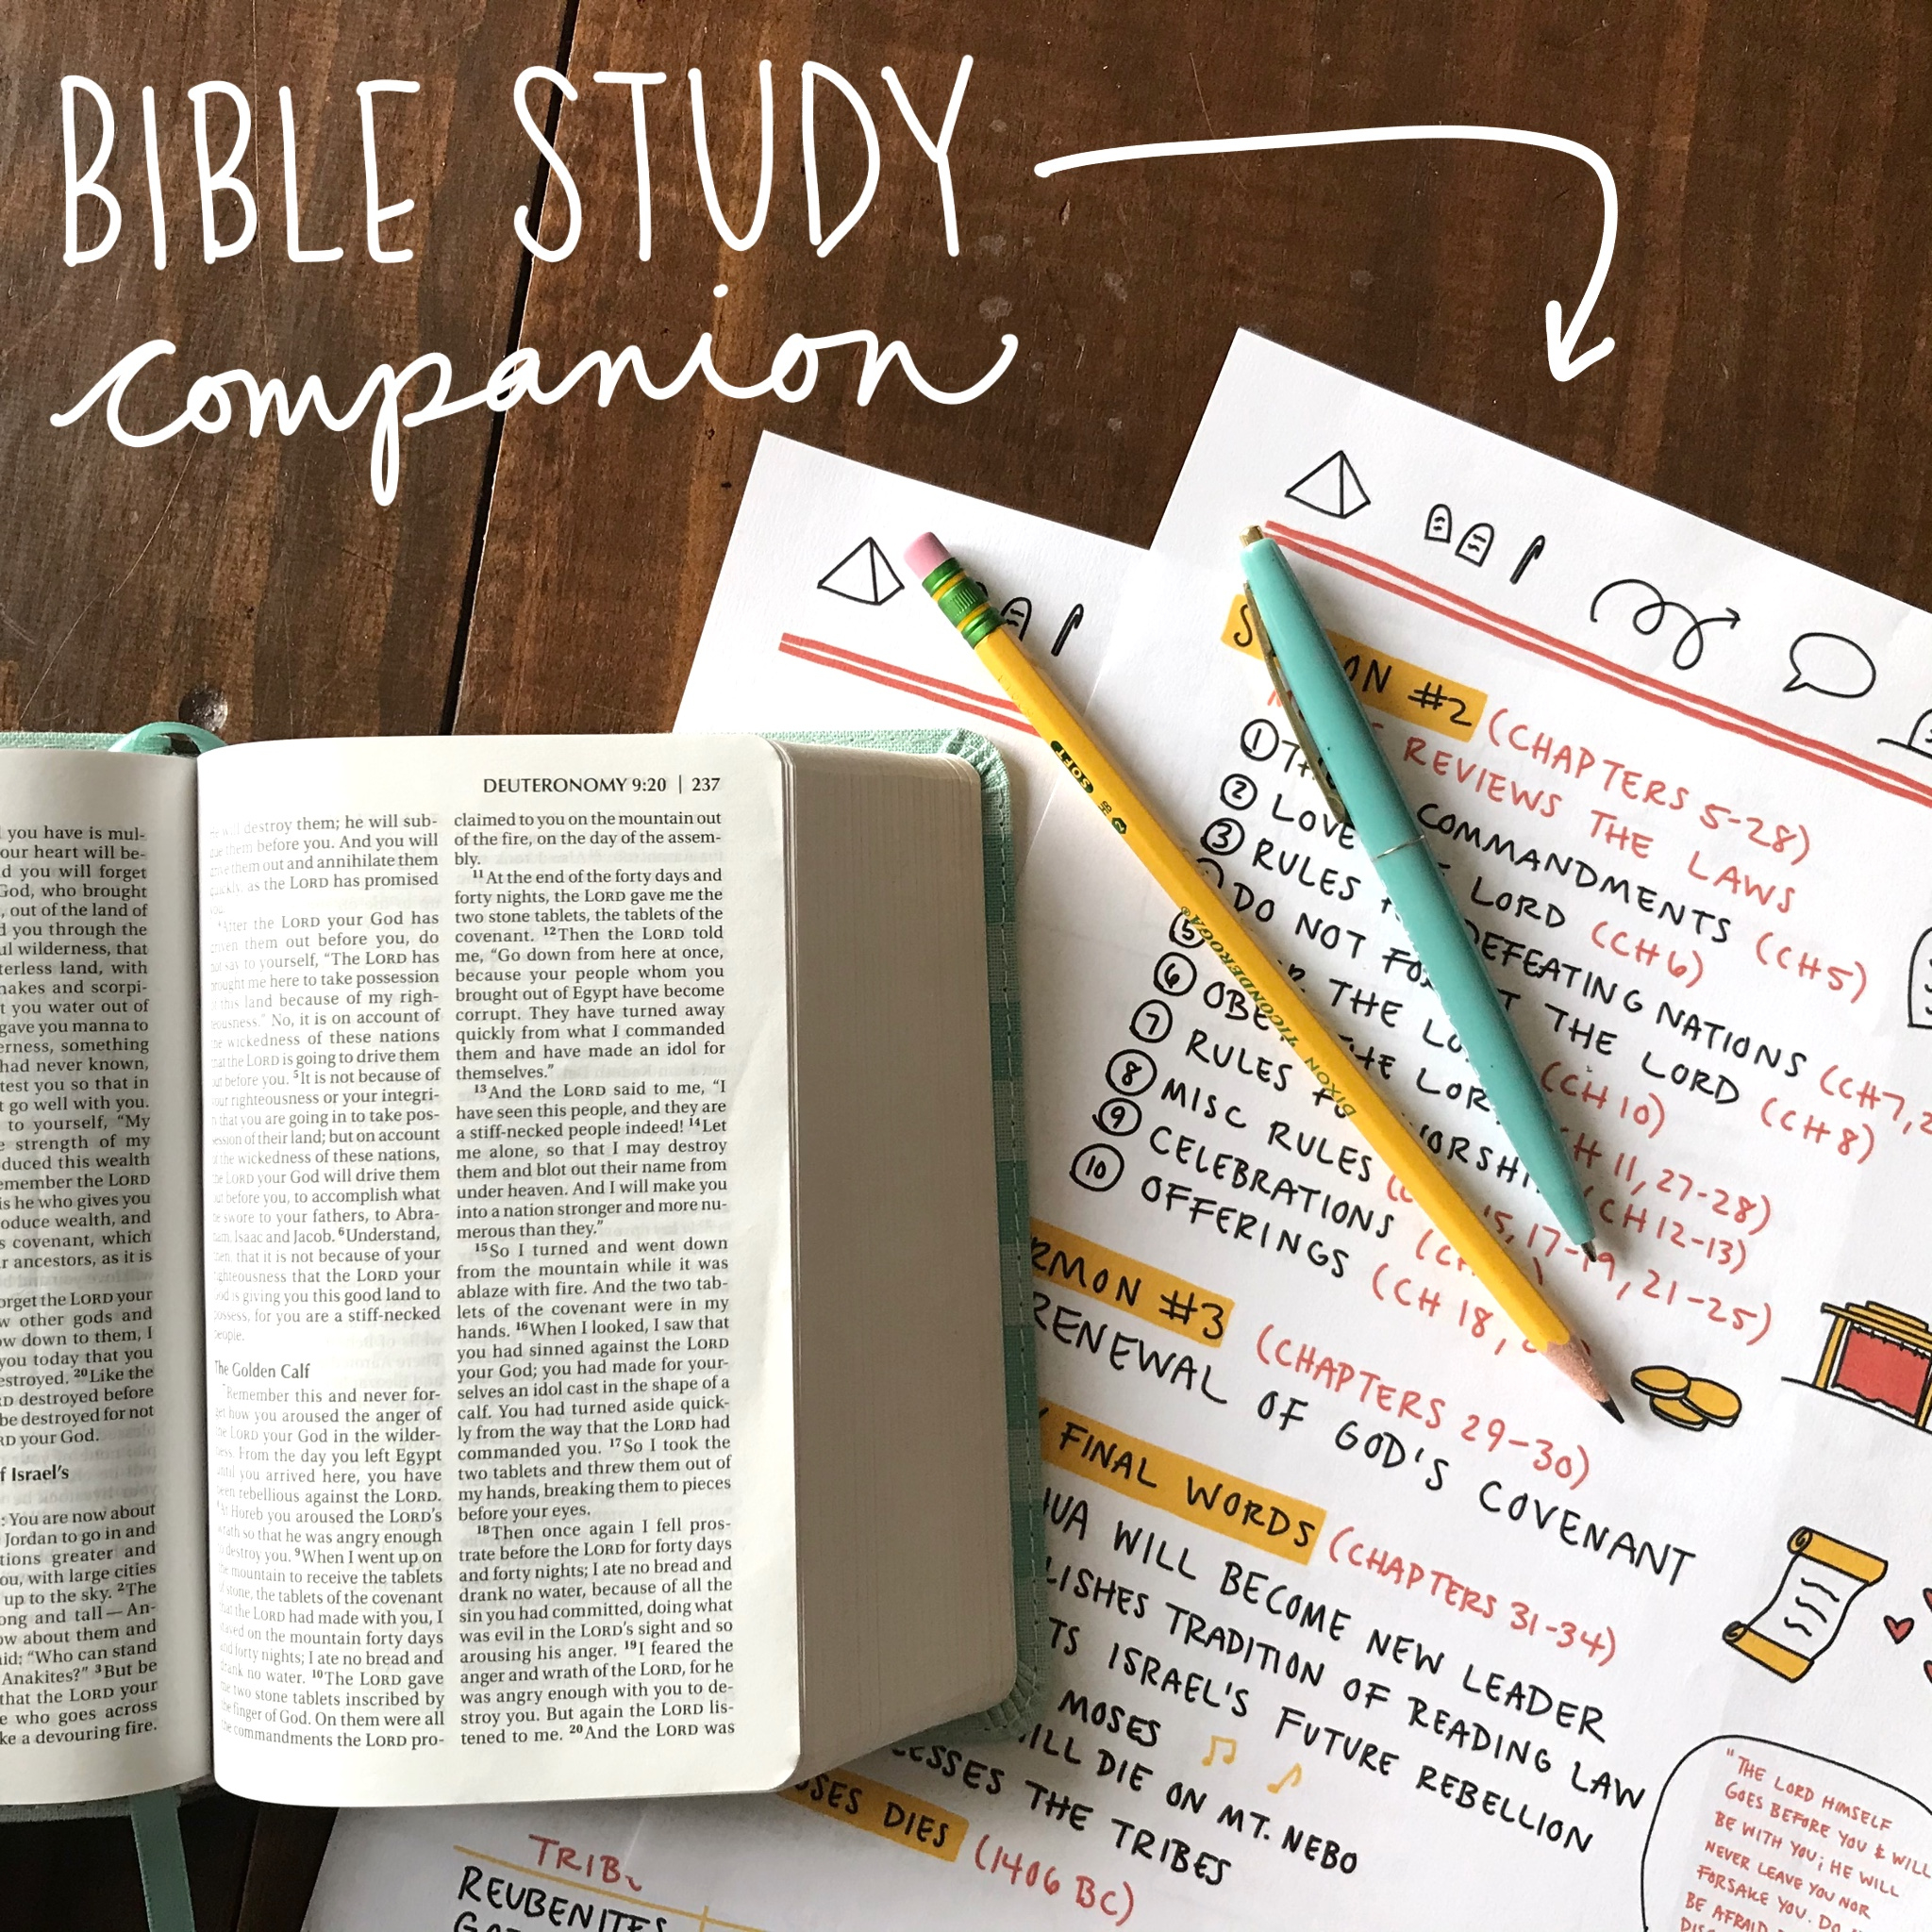 BIBLE STUDY
companion
you have is mul-
our heart will be-
d you will forget
God, who brought
, out of the land of
d you through the
ul wilderness, that
terless land, with
nakes and scorpi-
t you water out of
gave you manna to
erness, something
had never known,
test you so that in
t go well with you.
to yourself, “My
e strength of my
duced this wealth
emember the LORD
is he who gives you
oduce wealth, and
s covenant, which
r ancestors, as it is
orget the LORD your
w other gods and
ow down to them, I
you today that you
estroyed. 20Like the
RD destroyed before
be destroyed for not
RD your God.
f Israel’s
: You are now about
Jordan to go in and
tions greater and
ou, with large cities
up to the sky. 2The
ong and tall — An-
ow about them and
aid: “Who can stand
Anakites?” 3But be
that the LORD your
e who goes across
ke a devouring fire.
DEUTERONOMY 9:20 | 237
destroy them; he will sub-
them before you. And you will
them out and annihilate them
as the LORD has promised
After the LORD your God has
driven them out before you, do
not say to yourself, “The LORD has
brought me here to take possession
of this land because of my righ-
teousness.” No, it is on account of
the wickedness of these nations
that the LORD is going to drive them
out before you. 5It is not because of
your righteousness or your integri-
that you are going in to take pos-
session of their land; but on account
of the wickedness of these nations,
the LORD your God will drive them
out before you, to accomplish what
he swore to your fathers, to Abra-
ham, Isaac and Jacob. 6Understand,
then, that it is not because of your
righteousness that the LORD your
God is giving you this good land to
possess, for you are a stiff-necked
people.
The Golden Calf
Remember this and never for-
get how you aroused the anger of
the LORD your God in the wilder-
ness. From the day you left Egypt
until you arrived here, you have
been rebellious against the LORD.
At Horeb you aroused the LORD’s
wrath so that he was angry enough
to destroy you. 9When I went up on
the mountain to receive the tablets
of stone, the tablets of the covenant
that the LORD had made with you, I
stayed on the mountain forty days
and forty nights; I ate no bread and
drank no water. 10The LORD gave
me two stone tablets inscribed by
the finger of God. On them were all
the commandments the LORD pro-
claimed to you on the mountain out
of the fire, on the day of the assem-
bly.
11At the end of the forty days and
forty nights, the LORD gave me the
two stone tablets, the tablets of the
covenant. 12Then the LORD told
me, “Go down from here at once,
because your people whom you
brought out of Egypt have become
corrupt. They have turned away
quickly from what I commanded
them and have made an idol for
themselves.”
13And the LORD said to me, “I
have seen this people, and they are
a stiff-necked people indeed! 14Let
me alone, so that I may destroy
them and blot out their name from
under heaven. And I will make you
into a nation stronger and more nu-
merous than they.”
15So I turned and went down
from the mountain while it was
ablaze with fire. And the two tab-
lets of the covenant were in my
hands. 16When I looked, I saw that
you had sinned against the LORD
your God; you had made for your-
selves an idol cast in the shape of a
calf. You had turned aside quick-
ly from the way that the LORD had
commanded you. 17So I took the
two tablets and threw them out of
my hands, breaking them to pieces
before your eyes.
18Then once again I fell pros-
trate before the LORD for forty days
and forty nights; I ate no bread and
drank no water, because of all the
sin you had committed, doing what
was evil in the LORD’s sight and so
arousing his anger. 19I feared the
anger and wrath of the LORD, for he
was angry enough with you to de-
stroy you. But again the LORD lis-
tened to me. 20And the LORD was
#2 (CHAPTERS 5-28)
REVIEWS THE LAWS
① COMMANDMENTS (CH 5)
② LOVE LORD (CH 6)
③ RULES DEFEATING NATIONS (CH 7,
DO NOT THE LORD (CH 8)
⑤ THE (CH 10)
⑥ THE 11, 27-28)
⑦ RULES (CH 12-13)
⑧ MISC RULES 15, 17-19, 21-25)
⑨ CELEBRATIONS
⑩ OFFERINGS (CH 18,
RMON #3 (CHAPTERS 29-30)
RENEWAL OF GOD'S COVENANT
FINAL WORDS (CHAPTERS 31-34)
UA WILL BECOME NEW LEADER
LISHES TRADITION OF READING LAW
TS ISRAEL'S FUTURE REBELLION
MOSES
ILL DIE ON MT. NEBO
ESSES THE TRIBES
OSES DIES (1406 BC)
TRIB
REUBENITES
"THE LORD HIMSELF
GOES BEFORE YOU & WILL
BE WITH YOU; HE WILL
NEVER LEAVE YOU NOR
FORSAKE YOU. DO
BE AFRAID
SOFT
DIXON TICONDEROGA®